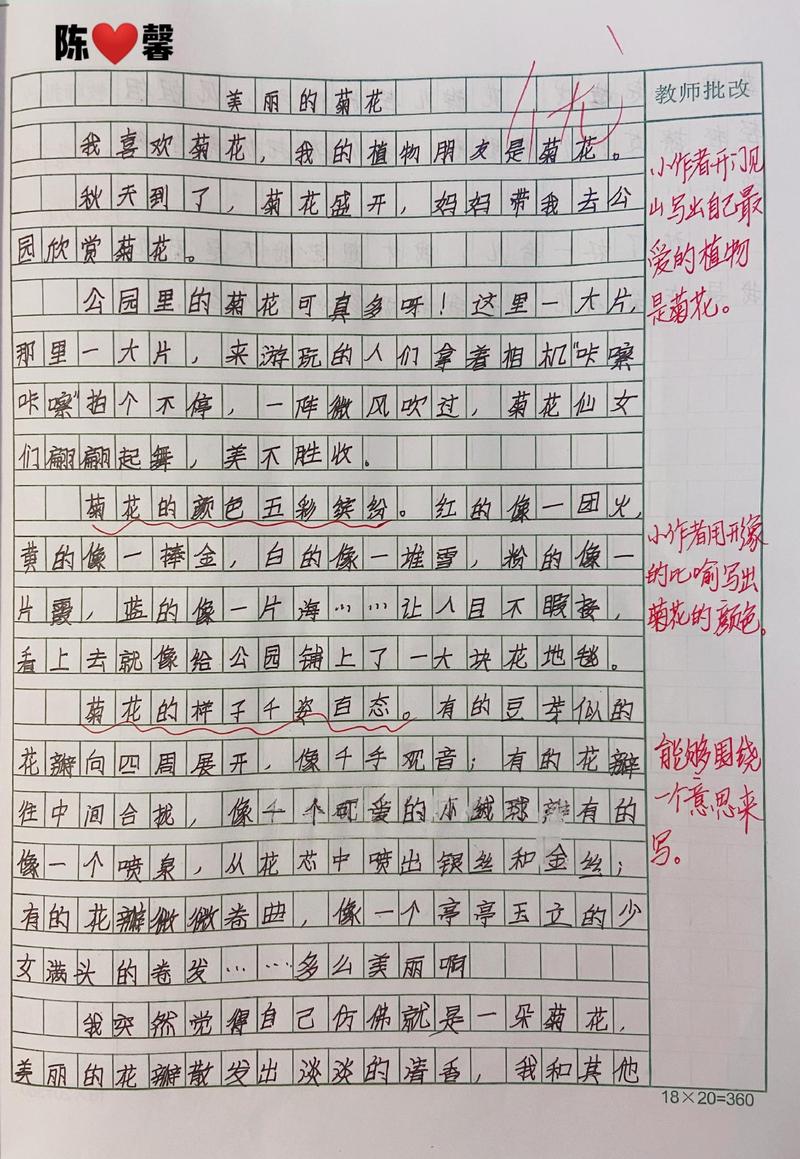 陈❤️馨
美丽的菊花
优
教师批改
我喜欢菊花，我的植物朋友是菊花。
秋天到了，菊花盛开，妈妈带我去公
园欣赏菊花。
公园里的菊花可真多呀！这里一大片，
那里一大片，来游玩的人们拿着相机"咔嚓
咔嚓"拍个不停，一阵微风吹过，菊花仙女
们翩翩起舞，美不胜收。
菊花的颜色五彩缤纷。红的像一团火，
黄的像一捧金，白的像一堆雪，粉的像一
片霞，蓝的像一片海……让人目不暇接，
看上去就像给公园铺上了一大块花地毯。
菊花的样子千姿百态。有的豆芽似的
花瓣向四周展开，像千手观音；有的花瓣
往中间合拢，像一个可爱的小绒球；有的
像一个喷泉，从花芯中喷出银丝和金丝；
有的花瓣微微卷曲，像一个亭亭玉立的少
女满头的卷发……多么美丽啊
我突然觉得自己仿佛就是一朵菊花，
美丽的花瓣散发出淡淡的清香，我和其他
小作者开门见
山写出自己最
爱的植物
是菊花。
小作者用形象
的比喻写出
菊花的颜色。
能够围绕
一个意思来
写。
18×20=360